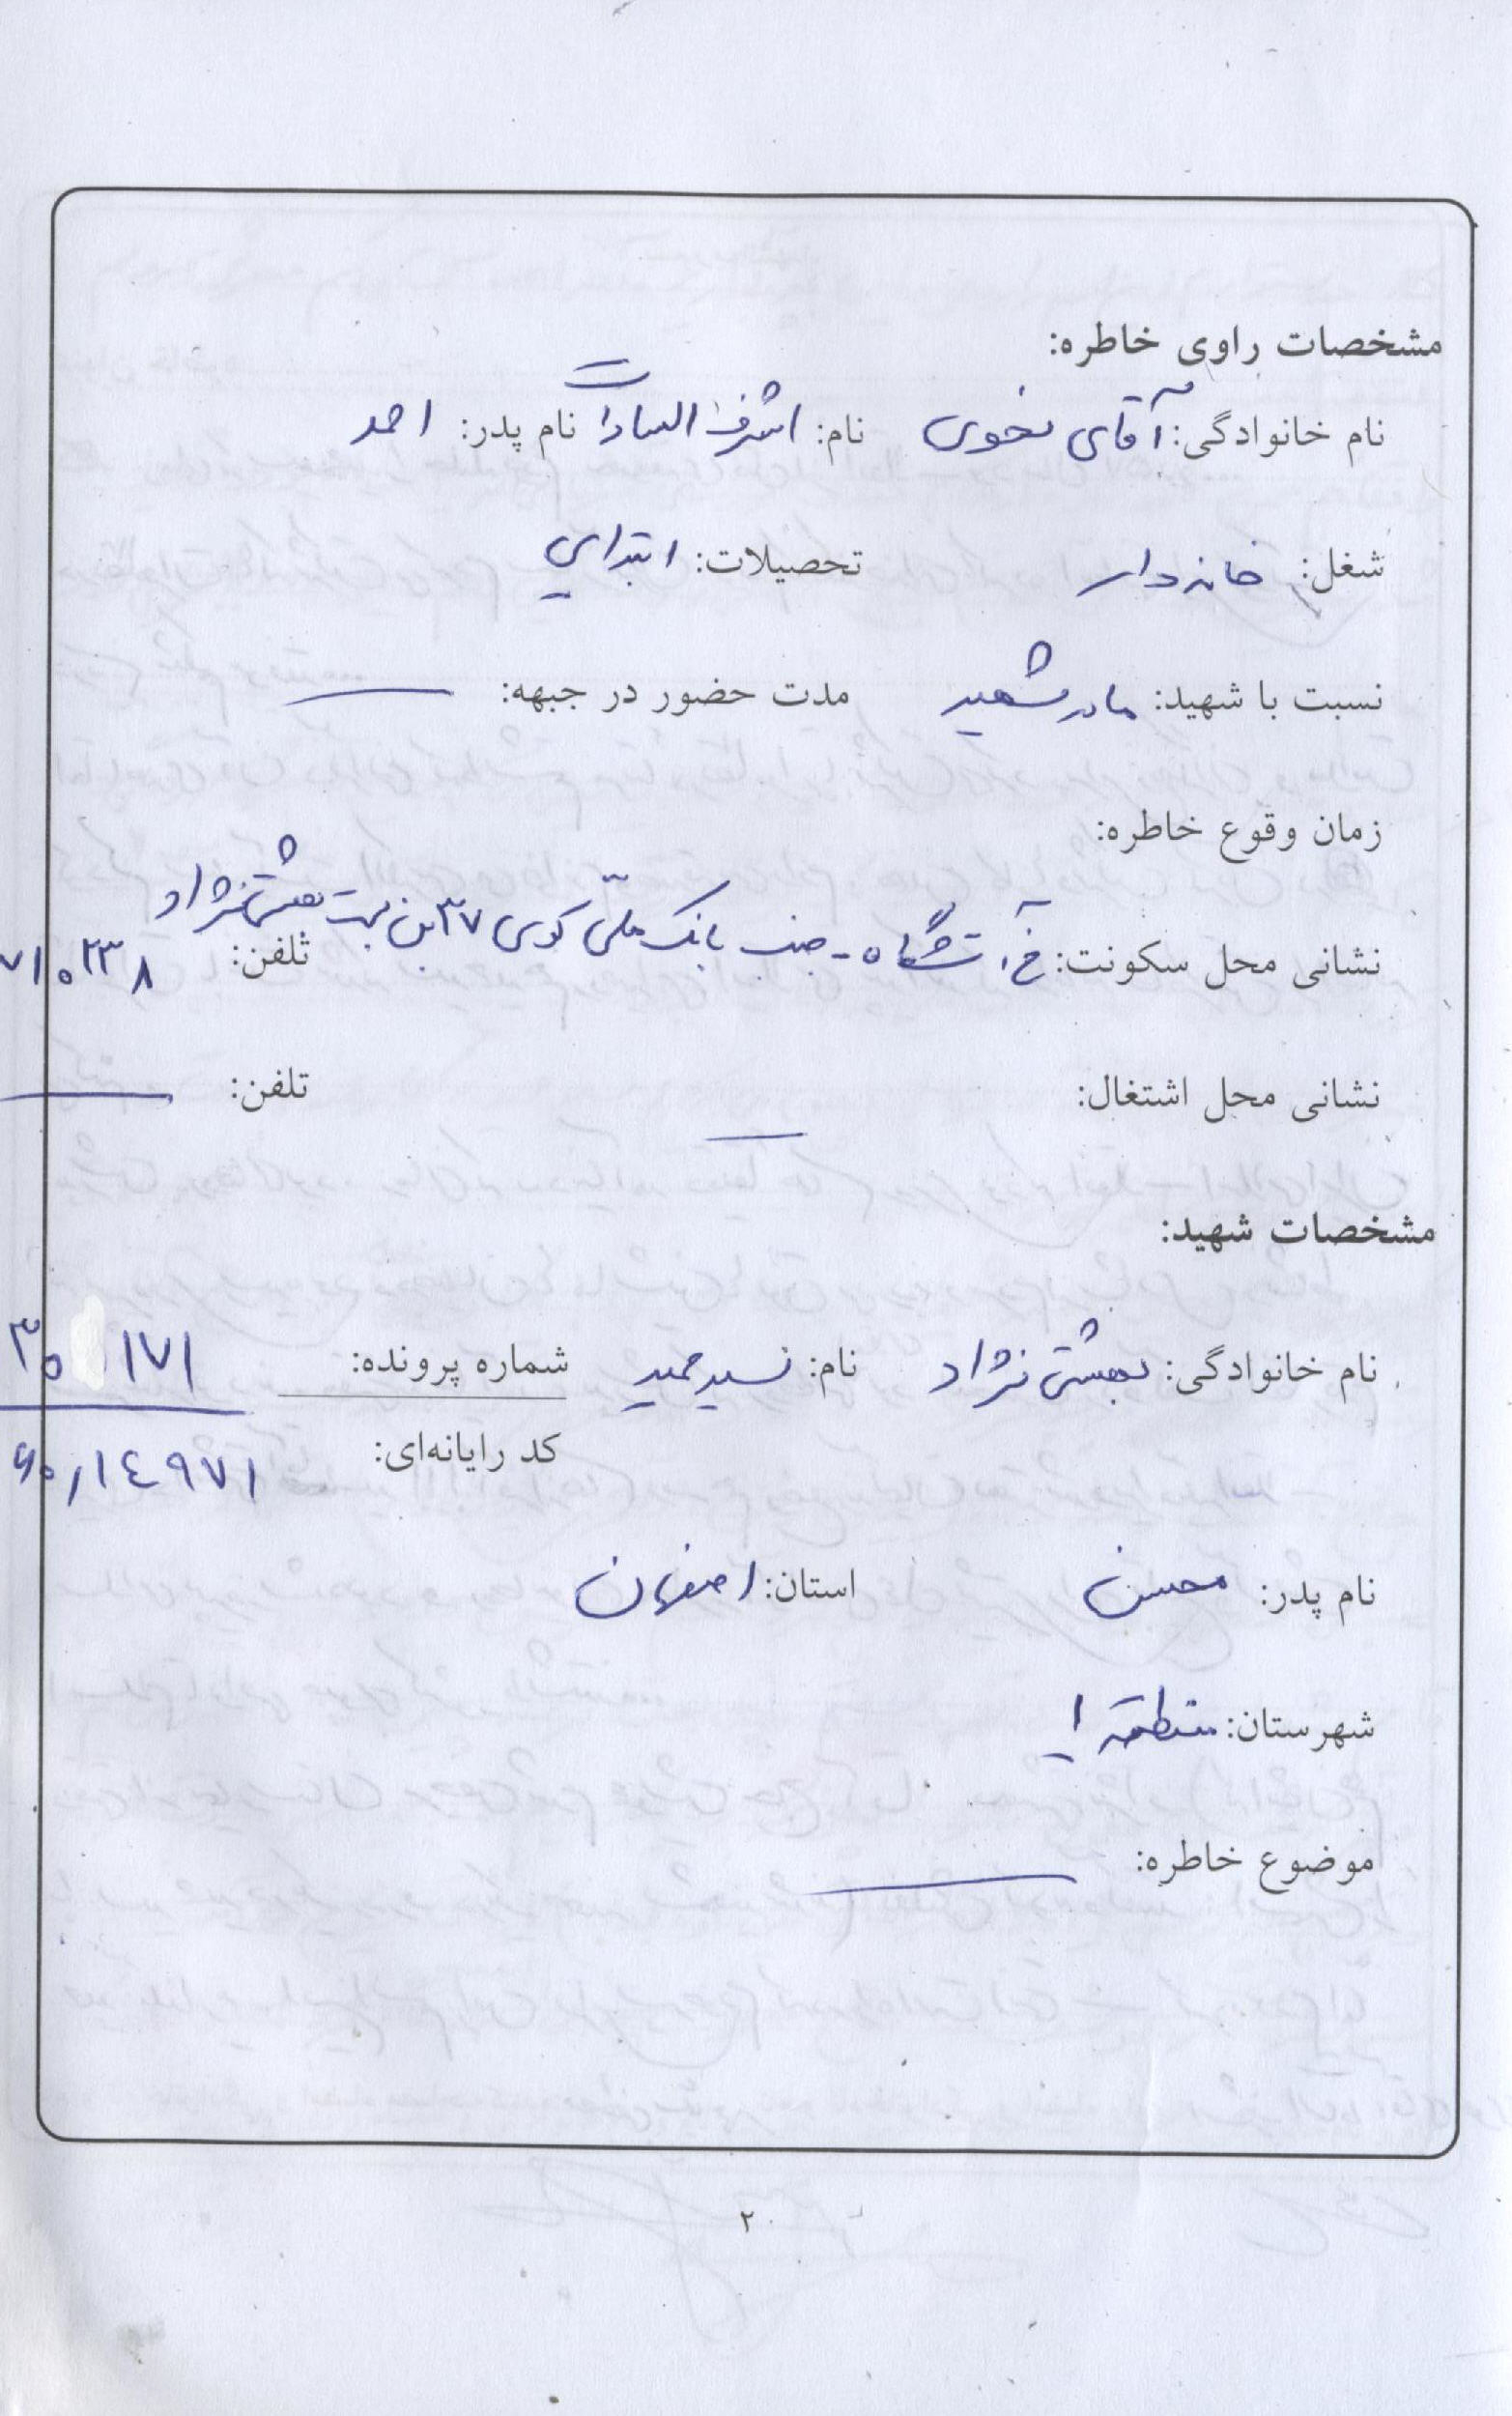 مشخصات راوی خاطره:
نام خانوادگی: آقای نحوی نام: اشرف السادات نام پدر: احمد
شغل: خانه دار تحصیلات: ابتدایی
نسبت با شهید: مادر شهید مدت حضور در جبهه: ــ
زمان وقوع خاطره:
نشانی محل سکونت: خ آتشگاه - جنب بانک ملّی کوی ۳۷ بن بست بهشتی نژاد تلفن: ۷۱۰۲۳۸
نشانی محل اشتغال: ــ تلفن: ــ
مشخصات شهید:
نام خانوادگی: بهشتی نژاد نام: سید حمید شماره پرونده: ۳۰ ۱۷۱
کد رایانه‌ای: ۶۰۱۴۹۷۱
نام پدر: محسن استان: اصفهان
شهرستان: منطقه ۱
موضوع خاطره: ــ
۲